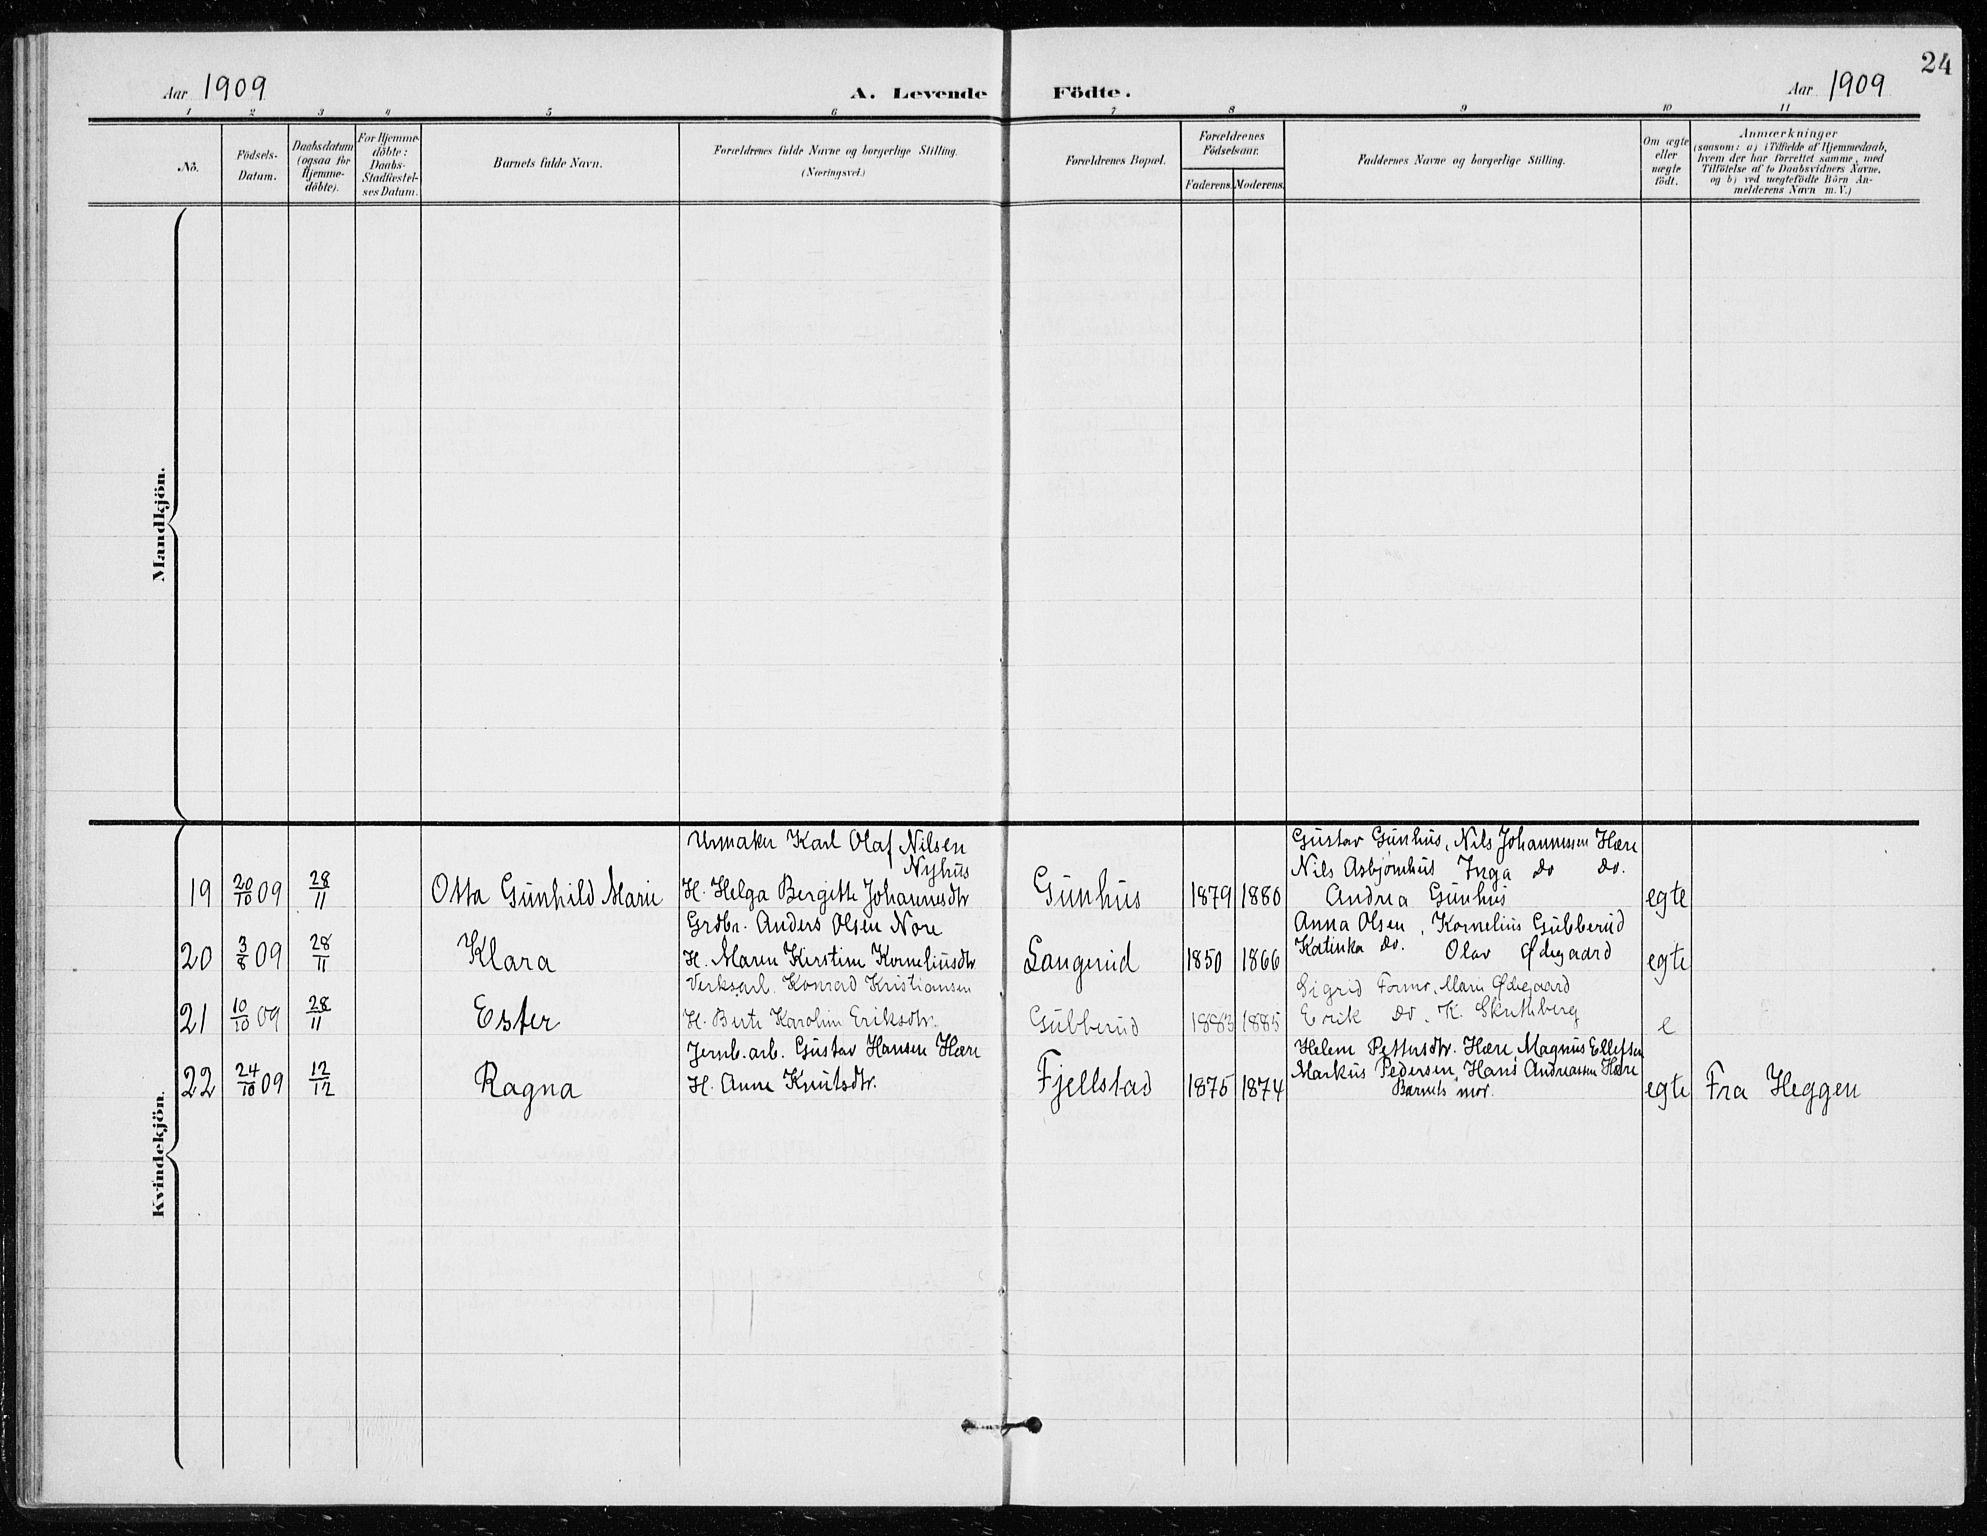 24
Aar 1909 A. Levende Födte. Aar 1909
1 2 3 4 5 6 7 8 9 10 11
No.
Födsels-
Datum.
Daabsdatum
(ogsaa for
Hjemme-
döbte).
For Hjemme-
döbte:
Daabs-
Stadfæstel-
ses Datum.
Barnets fulde Navn.
Forældrenes fulde Navne og borgerlige Stilling.
(Næringsvei.)
Forældrenes Bopæl.
Forældrenes
Födselsaar.
Faderens. Moderens.
Faddernes Navne og borgerlige Stilling.
Om ægte
eller
uægte
födt.
Anmærkninger
(saasom: a) i Tilfælde af Hjemmedaab,
hvem der har forrettet samme, med
Tilföielse af to Daabsvidners Navne,
og b) ved uægtefödte Börn An-
melderens Navn m. V.)
Mandkjön.
Kvindekjön.
19 20/10 09 28/11 Otta Gunhild Marie
Urmaker Karl Olaf Nilsen
Nyhus
H. Helga Bergitte Johannesdtr
Gunhus 1879 1880
Gustav Gunhus, Nils Johannessen Hære
Nils Asbjørnhus Inga do do.
Andrea Gunhus
egte
20 3/8 09 28/11 Klara
Grdbr. Anders Olsen Nore
H. Maren Kirstine Korneliusdtr
Langerud 1850 1866
Anna Olsen, Kornelius Gubberud
Katinka do. Olav Ødegaard
egte
21 10/10 09 28/11 Ester
Verksarb. Konrad Kristiansen
H. Berte Karoline Eriksdtr.
Gubberud 1883 1885
Sigrid Formo, Marie Ødegaard
Erik do. K. Skuthberg
e
22 24/10 09 12/12 Ragna
Jernb. arb. Gustav Hansen Hære
H. Anne Knutsdtr.
Fjellstad 1875 1874
Helene Pettersdtr. Hære, Magnus Ellefsen
Markus Pedersen, Hans Andreassen Hære
Barnets mor.
egte Fra Heggen